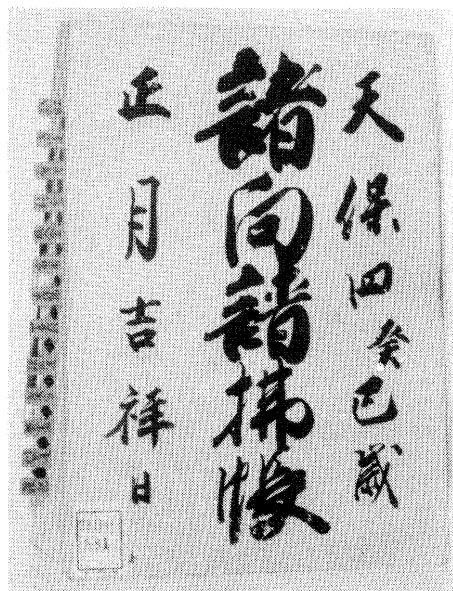 天保四癸巳歳
諸向諸拂帳
正月吉祥日